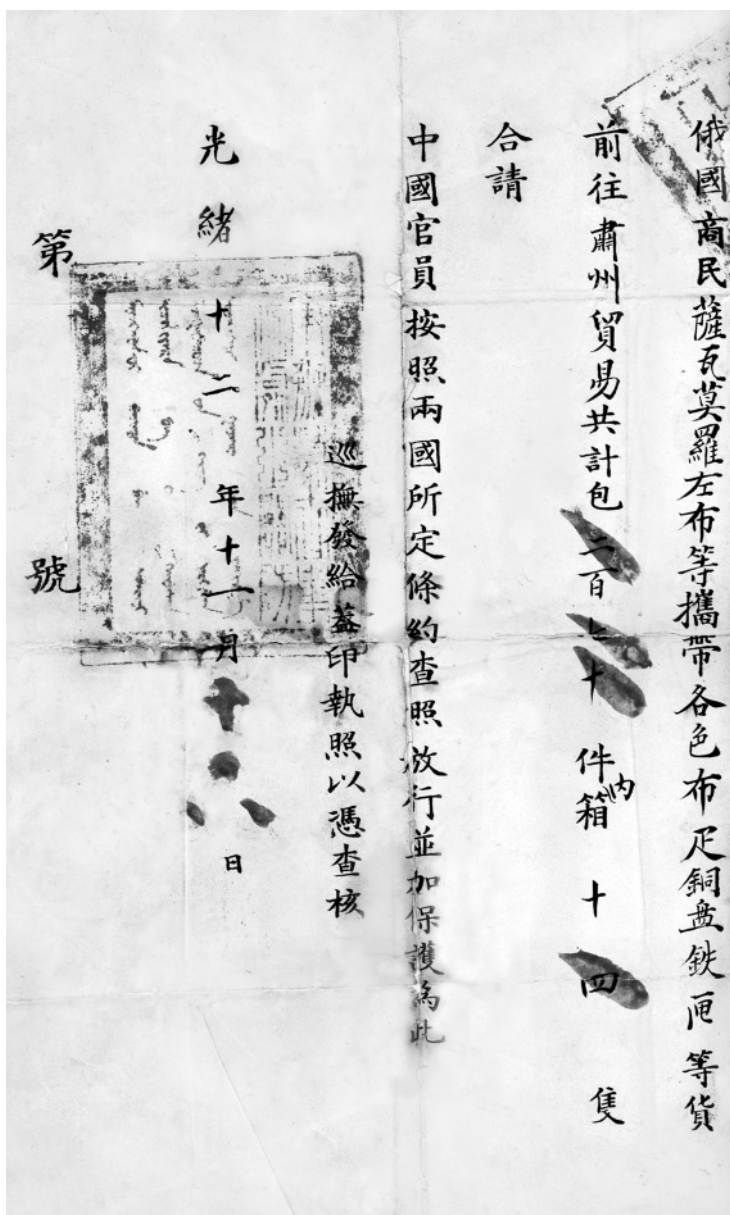 俄國商民薩瓦莫羅左布等攜帶各色布疋銅盆鉄匣等貨
前往肅州貿易共計包二百七十件內箱十四隻
合請
中國官員按照兩國所定條約查照放行並加保護為此
巡撫發給蓋印執照以憑查核
光緒十二年十一月十八日
第號